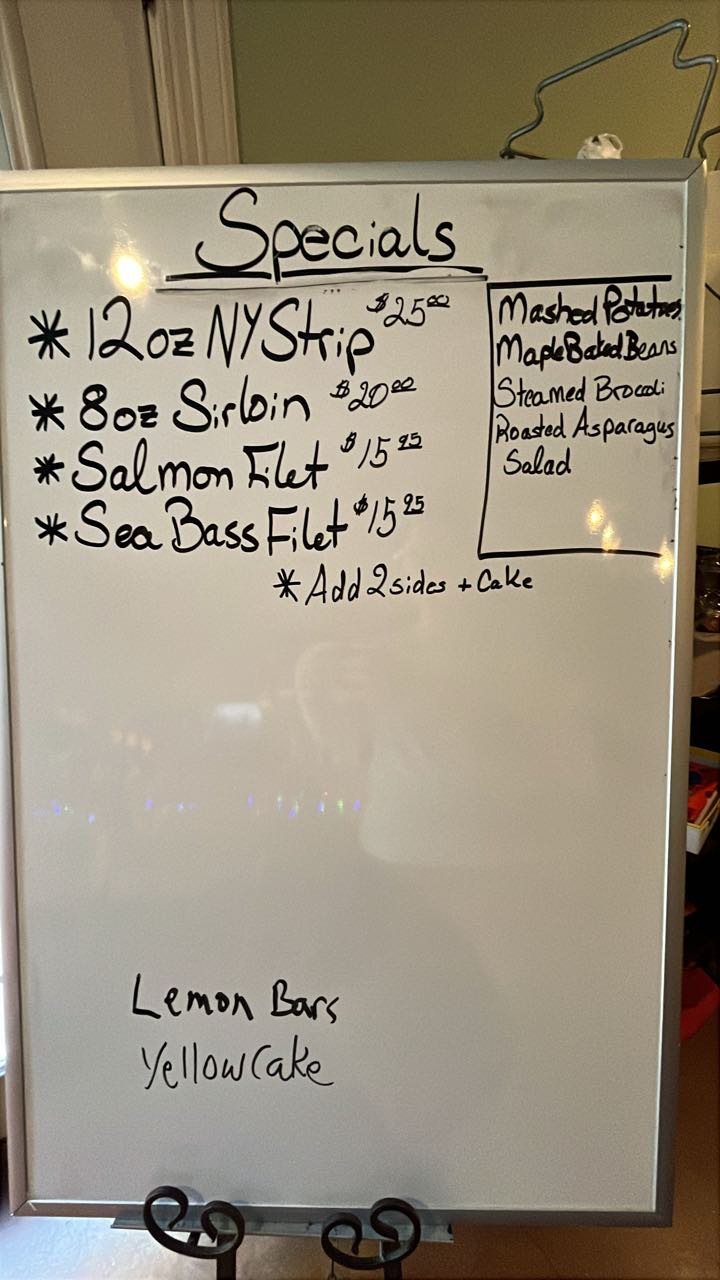 Specials
* 12oz NY Strip $25.00
* 8oz Sirloin $20.00
* Salmon Filet $15.95
* Sea Bass Filet $15.95
* Add 2 sides + Cake
Mashed Potatoes
Maple Baked Beans
Steamed Brocoli
Roasted Asparagus
Salad
Lemon Bars
Yellow Cake